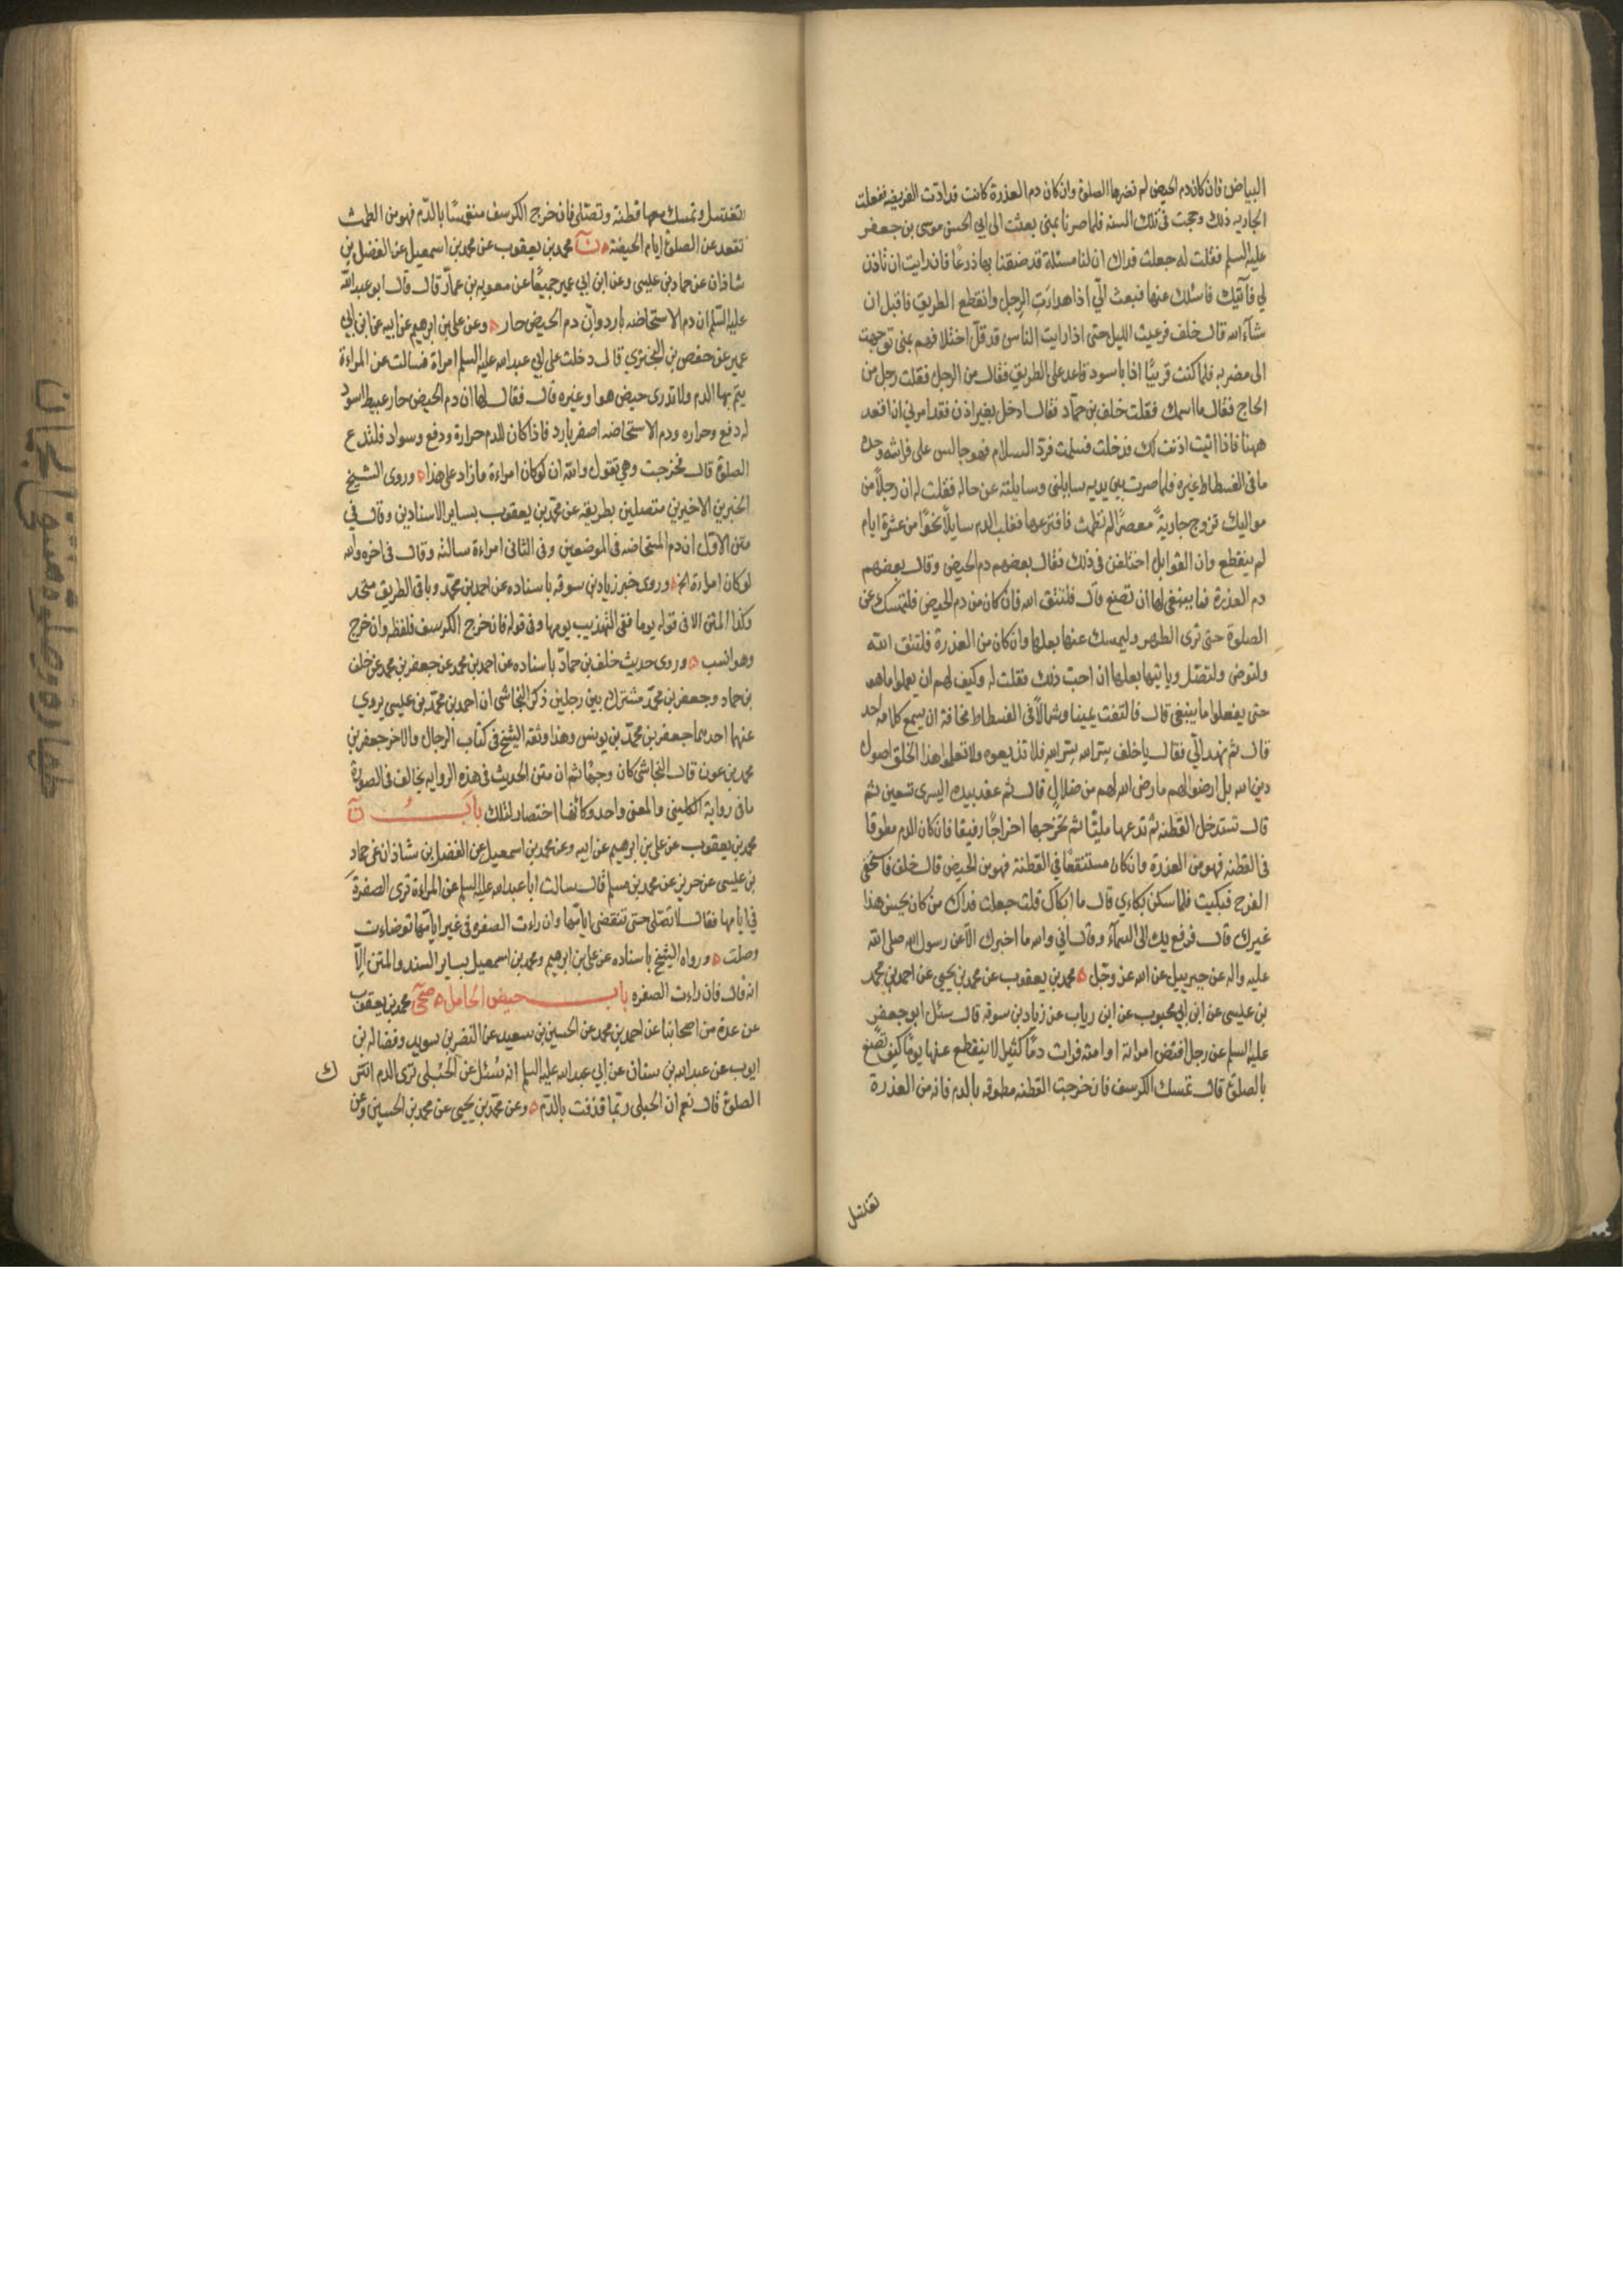 البياض فان كان دم الحيض لم تضرها الصلوة وان كان دم العذرة كانت قد ادّت الفريضه ففعلت
الجاريه ذلك وحجت فى تلك السنه فلما صرنا بمنى بعثت الى ابي الحسن موسى بن جعفر
عليه السلم فقلت له جعلت فداك ان لنا مسئلة قد ضقنا بها ذرعًا فان رايت ان تاذن
لي فآتيك فاسئلك عنها فبعث الىّ اذا هدأتِ الرجل وانقطع الطريق فاقبل ان
شآء الله قال خلف فرعيت الليل حتى اذا رايت الناس قد قلّ اختلافهم بمنى توجهت
الى مضربه فلما كنت قريبًا اذا باسود قاعد على الطريق فقال من الرجل فقلت رجل من
الحاج فقال ما اسمك فقلت خلف بن حمّاد فقال ادخل بغير اذن فقد امرني ان اقعد
ههنا فاذا اتيت اذنت لك فدخلت فسلمت فردّ السلام فهو جالس على فراشه وحده
ما فى الفسطاط غيره فلما صرت بين يديه سايلنى وسايلته عن حاله فقلت له ان رجلاً من
مواليك تزوج جاريةً معصرًا لم تطمث فافترعها فغلب الدم سايلاً نحوًا من عشرة ايام
لم ينقطع وان القوابل اختلفن فى ذلك فقال بعضهم دم الحيض وقال بعضهم
دم العذرة فما ينبغى لها ان تصنع قال فلتتق الله فان كان من دم الحيض فلتمسك عن
الصلوة حتى ترى الطهر وليمسك عنها بعلها وان كان من العذرة فلتتق الله
ولتوض ولتصل وياتيها بعلها ان احبّ ذلك فقلت له وكيف لهم ان يعملوا ما هو
حتى يفعلوا ما ينبغى قال فالتفت يمينا وشمالاً فى الفسطاط مخافة ان يسمع كلامه احد
قال ثم نهد الىّ فقال يا خلف سرّ الله سرّ الله فلا تذيعوه ولا تعلموا هذا الخلق اصول
دين الله بل ارضوا لهم ما رضى الله لهم من ضلال قال ثم عقد بيده اليسرى تسعين ثم
قال تستدخل القطنه ثم تدعها مليّا ثم تخرجها اخراجًا رفيقا فان كان الدم مطوقا
فى القطنه فهو من العذرة وان كان مستنقعًا في القطنة فهو من الحيض قال خلف فاستخفى
الفرح فبكيت فلما سكن بكاءي قال ما ابكاك قلت جعلت فداك من كان يحسن هذا
غيرك قال فرفع يده الى السمآء وقال اني والله ما اخبرك الاّ عن رسول الله صلى الله
عليه واله عن جبرييل عن الله عز وجل محمد بن يعقوب عن محمد بن يحيى عن احمد بن محمد
بن عليسى عن ابن محبوب عن ابن رياب عن زياد بن سوقه قال سئل ابو جعفر
عليه السلم عن رجل افتض امراته او امته فرات دمًا كثيرا لا ينقطع عنها يومًا كيف تصنع
بالصلوة قال تمسك الكرسف فان خرجت القطنه مطوقه بالدم فانه من العذرة
تغتسل
تغتسل وتمسك معها قطنة وتصلى فان خرج الكرسف منغمسًا بالدّم فهو من الطمث
تقعد عن الصلوة ايام الحيضة ن محمد بن يعقوب عن محمد بن اسمعيل عن الفضل بن
شاذان عن حماد بن عيسى وعن ابن ابي عمير جميعًا عن معويه بن عمار قال قال ابو عبد الله
عليه السّلم ان دم الاستحاضه بارد وان دم الحيض حار وعن على بن ابرهيم عن ابيه عن ابن ابي
عمير عن حفص بن البخترى قال دخلت على ابي عبد الله عليه السلم امراة فسالت عن المراءة
يتم بها الدم ولا تدرى حيض هو او غيره قال فقال لها ان دم الحيض حار عبيط اسود
له دفع وحراره ودم الاستحاضه اصفر بارد فاذا كان للدم حرارة ودفع وسواد فلتدع
الصلوة قال فخرجت وهي تقول والله ان لو كان امراءة ما زاد على هذا وروى الشيخ
الخبرين الاخيرين متصلين بطريقه عن محمد بن يعقوب بساير الاسنادين وقال في
متن الاول ان دم المستحاضه فى الموضعين وفى الثانى امراءة سالته وقال فى اخره والله
لو كان امراءة الخ وروى خبر زياد بن سوقه باسناده عن احمد بن محمّد وباقى الطريق متحد
وكذا المتن الا فى قوله يوما ففى التهذيب يومها وفى قوله فان خرج الكرسف فلفظه وان خرج
وهو انسب وروى حديث خلف بن حمّاد باسناده عن احمد بن محمد عن جعفر بن محمد عن خلف
بن حماد وجعفر بن محمّد مشترك بين رجلين ذكر النجاشى ان احمد بن محمّد بن عليسى يروي
عنهما احدهما جعفر بن محمّد بن يونس وهذا وثقه الشيخ فى كتاب الرجال والاخر جعفر بن
محمد بن عون قال النجاشى كان وجهًا ثم ان متن الحديث فى هذه الروايه يخالف فى الصورة
ما فى رواية الكلينى والمعنى واحد وكانها اختصار لتلك باب ن
محمد بن يعقوب عن على بن ابرهيم عن ابيه وعن محمد بن اسمعيل عن الفضل بن شاذان عن حماد
بن عليسى عن حريز عن محمد بن مسلم قال سالت ابا عبد الله عليه السلم عن المراءة ترى الصفرة
في ايامها فقال لا تصلى حتى تنقضى ايامها وان راءت الصفره فى غير ايامها توضاءت
وصلت ورواه الشيخ باسناده عن على بن ابرهيم ومحمد بن اسمعيل بساير السند والمتن الاّ
انه قال فان راءت الصفره باب حيض الحامل صحى محمد بن يعقوب
عن عدة من اصحابنا عن احمد بن محمد عن الحسين بن سعيد عن النضر بن سويد وفضاله بن
ايوب عن عبد الله بن سنان عن ابي عبد الله عليه السلم انه سُئل عن الحُبلى ترى الدم اتترك
الصلوة قال نعم ان الحبلى ربّما قذفت بالدّم وعن محمّد بن يحيى عن محمد بن الحسين وعن